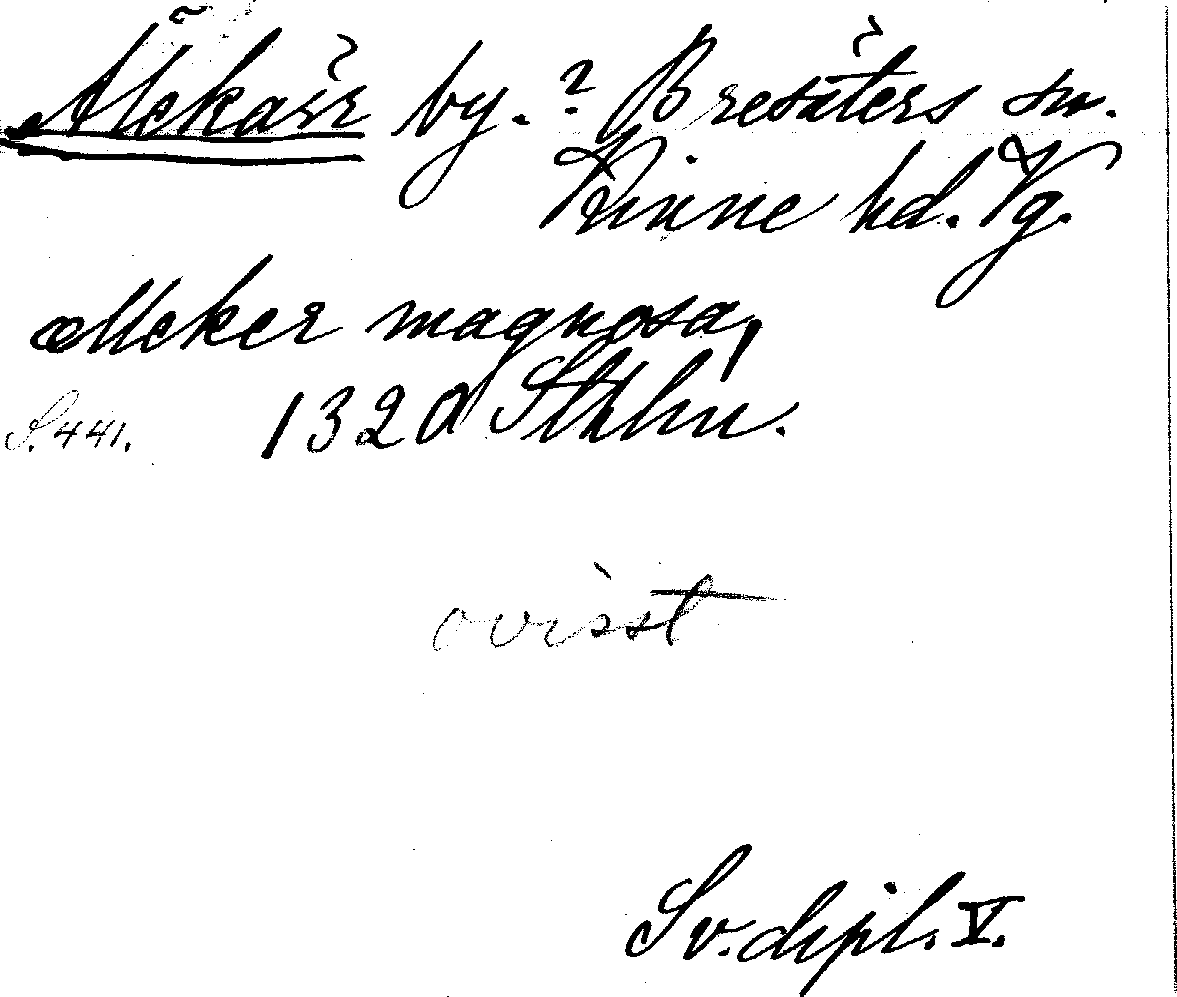 Älekärr by. ? Bresäters sn.
Kinne hd. Vg.
ælleker magnosa,
S. 441. 1320 Sthlm.
ovisst
Sv. dipl. V.